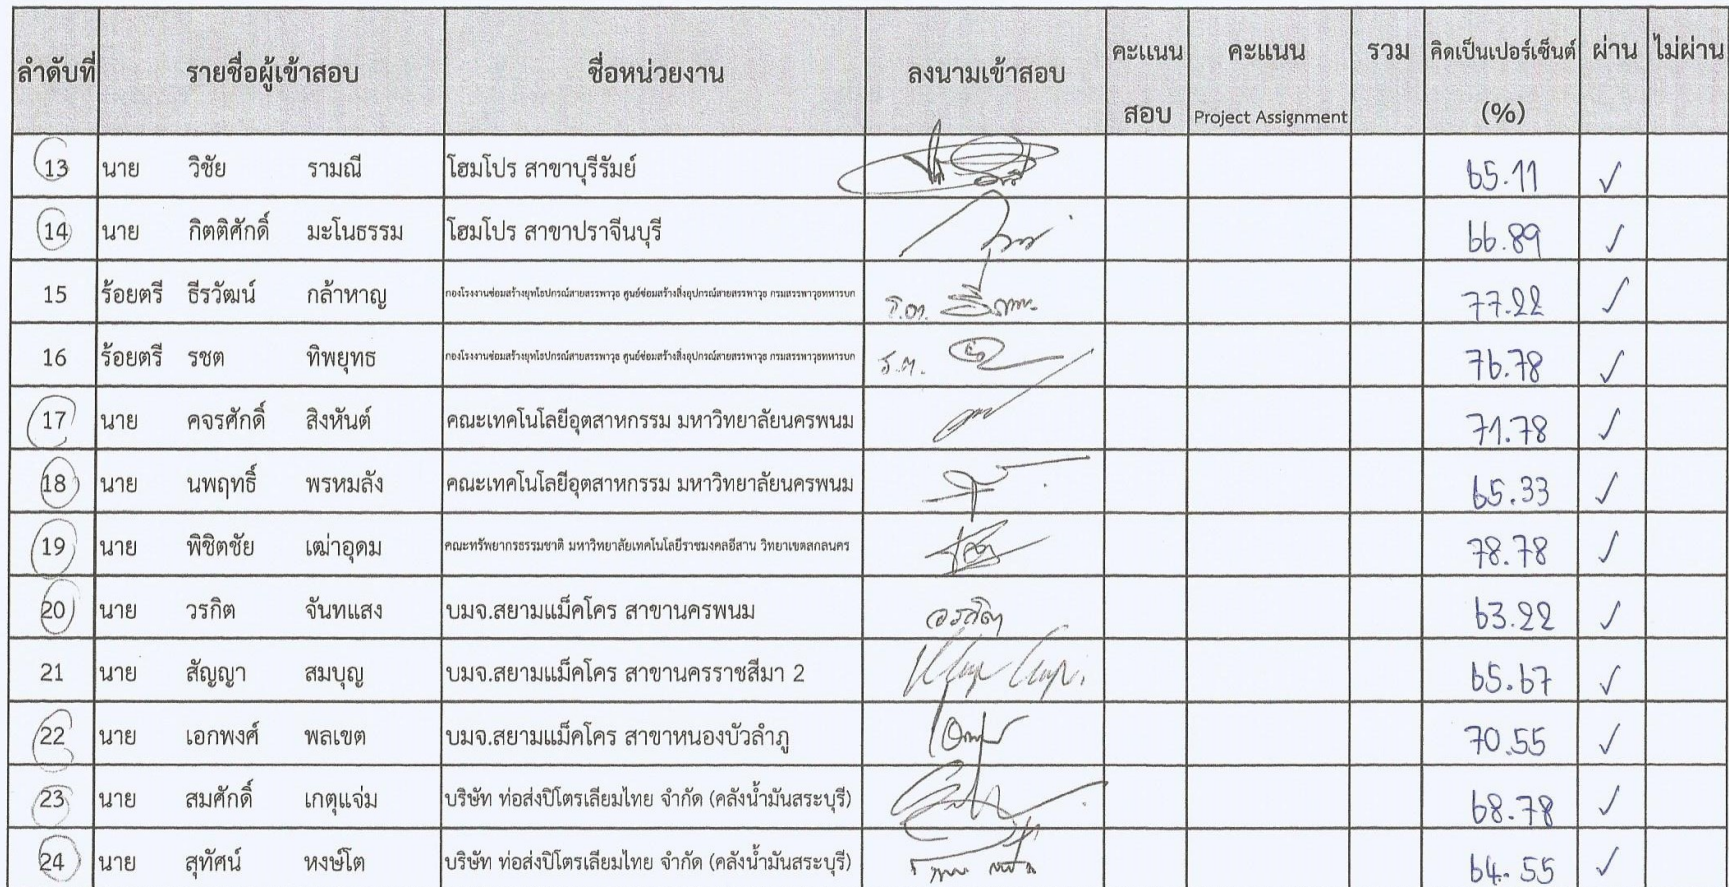 ลำดับที่ รายชื่อผู้เข้าสอบ ชื่อหน่วยงาน ลงนามเข้าสอบ คะแนน สอบ คะแนน Project Assignment รวม คิดเป็นเปอร์เซ็นต์ (%) ผ่าน ไม่ผ่าน
13 นาย วิชัย รามณี โฮมโปร สาขาบุรีรัมย์ 65.11 ✓
14 นาย กิตติศักดิ์ มะโนธรรม โฮมโปร สาขาปราจีนบุรี 66.89 ✓
15 ร้อยตรี ธีรวัฒน์ กล้าหาญ กองโรงงานซ่อมสร้างยุทโธปกรณ์สายสรรพาวุธ ศูนย์ซ่อมสร้างสิ่งอุปกรณ์สายสรรพาวุธ กรมสรรพาวุธทหารบก 77.22 ✓
16 ร้อยตรี รชต ทิพยุทธ กองโรงงานซ่อมสร้างยุทโธปกรณ์สายสรรพาวุธ ศูนย์ซ่อมสร้างสิ่งอุปกรณ์สายสรรพาวุธ กรมสรรพาวุธทหารบก ร.ต. 76.78 ✓
17 นาย คจรศักดิ์ สิงหันต์ คณะเทคโนโลยีอุตสาหกรรม มหาวิทยาลัยนครพนม 71.78 ✓
18 นาย นพฤทธิ์ พรหมลัง คณะเทคโนโลยีอุตสาหกรรม มหาวิทยาลัยนครพนม 65.33 ✓
19 นาย พิชิตชัย เฒ่าอุดม คณะทรัพยากรธรรมชาติ มหาวิทยาลัยเทคโนโลยีราชมงคลอีสาน วิทยาเขตสกลนคร 78.78 ✓
20 นาย วรกิต จันทแสง บมจ.สยามแม็คโคร สาขานครพนม วรกิต 63.22 ✓
21 นาย สัญญา สมบุญ บมจ.สยามแม็คโคร สาขานครราชสีมา 2 65.67 ✓
22 นาย เอกพงศ์ พลเขต บมจ.สยามแม็คโคร สาขาหนองบัวลำภู 70.55 ✓
23 นาย สมศักดิ์ เกตุแจ่ม บริษัท ท่อส่งปิโตรเลียมไทย จำกัด (คลังน้ำมันสระบุรี) 68.78 ✓
24 นาย สุทัศน์ หงษ์โต บริษัท ท่อส่งปิโตรเลียมไทย จำกัด (คลังน้ำมันสระบุรี) 64.55 ✓